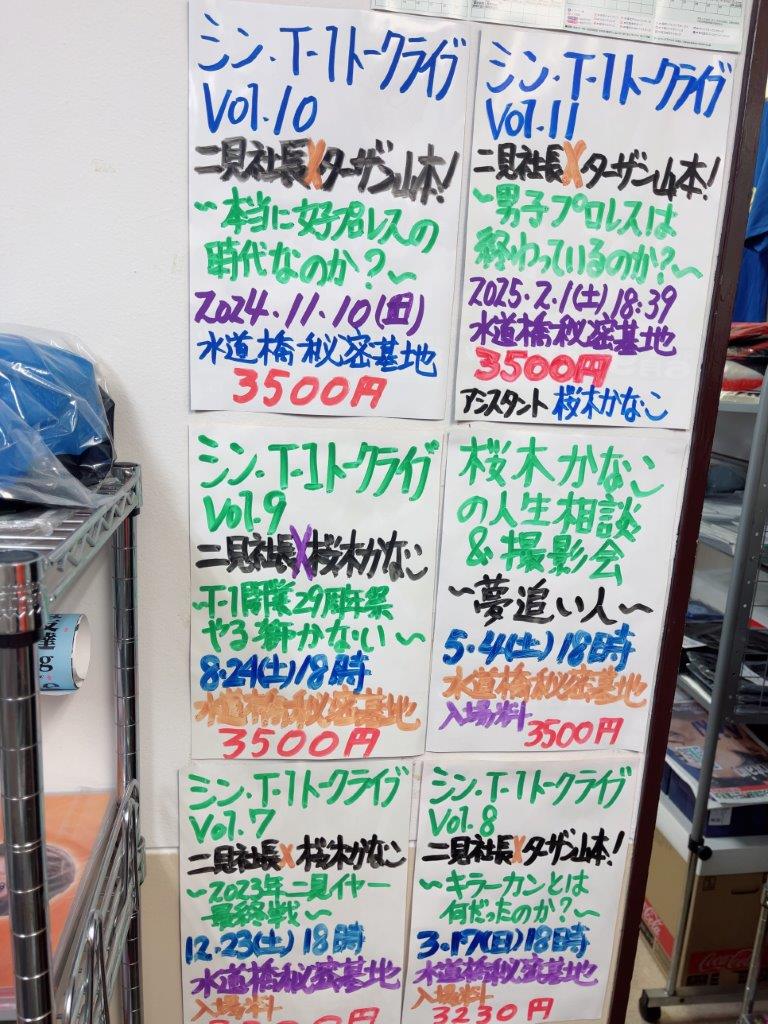 シン・T-1トークライブ
Vol.10
二見社長×ターザン山本!
〜本当に女子プロレスの
時代なのか?〜
2024.11.10(日)
水道橋秘密基地
3500円
シン・T-1トークライブ
Vol.11
二見社長×ターザン山本!
〜男子プロレスは
終わっているのか?〜
2025.2.1(土)18:39
水道橋秘密基地
3500円
アシスタント 桜木かなこ
シン・T-1トークライブ
Vol.9
二見社長×桜木かなこ
〜T-1開業29周年祭
やる獅かない〜
8.24(土)18時
水道橋秘密基地
3500円
桜木かなこ
の人生相談
&撮影会
〜夢追い人〜
5.4(土)18時
水道橋秘密基地
入場料
3500円
シン・T-1トークライブ
Vol.7
二見社長×桜木かなこ
〜2023年二見イヤー
最終戦〜
12.23(土)18時
水道橋秘密基地
入場料
シン・T-1トークライブ
Vol.8
二見社長×ターザン山本!
〜キラーカンとは
何だったのか?〜
3.17(日)18時
水道橋秘密基地
入場料
3230円
Coca-Cola